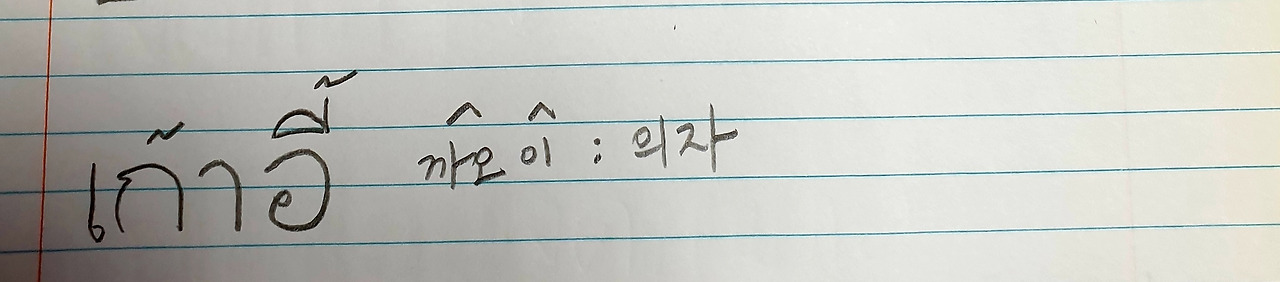 เก้าอี้ 까오 이 : 의자